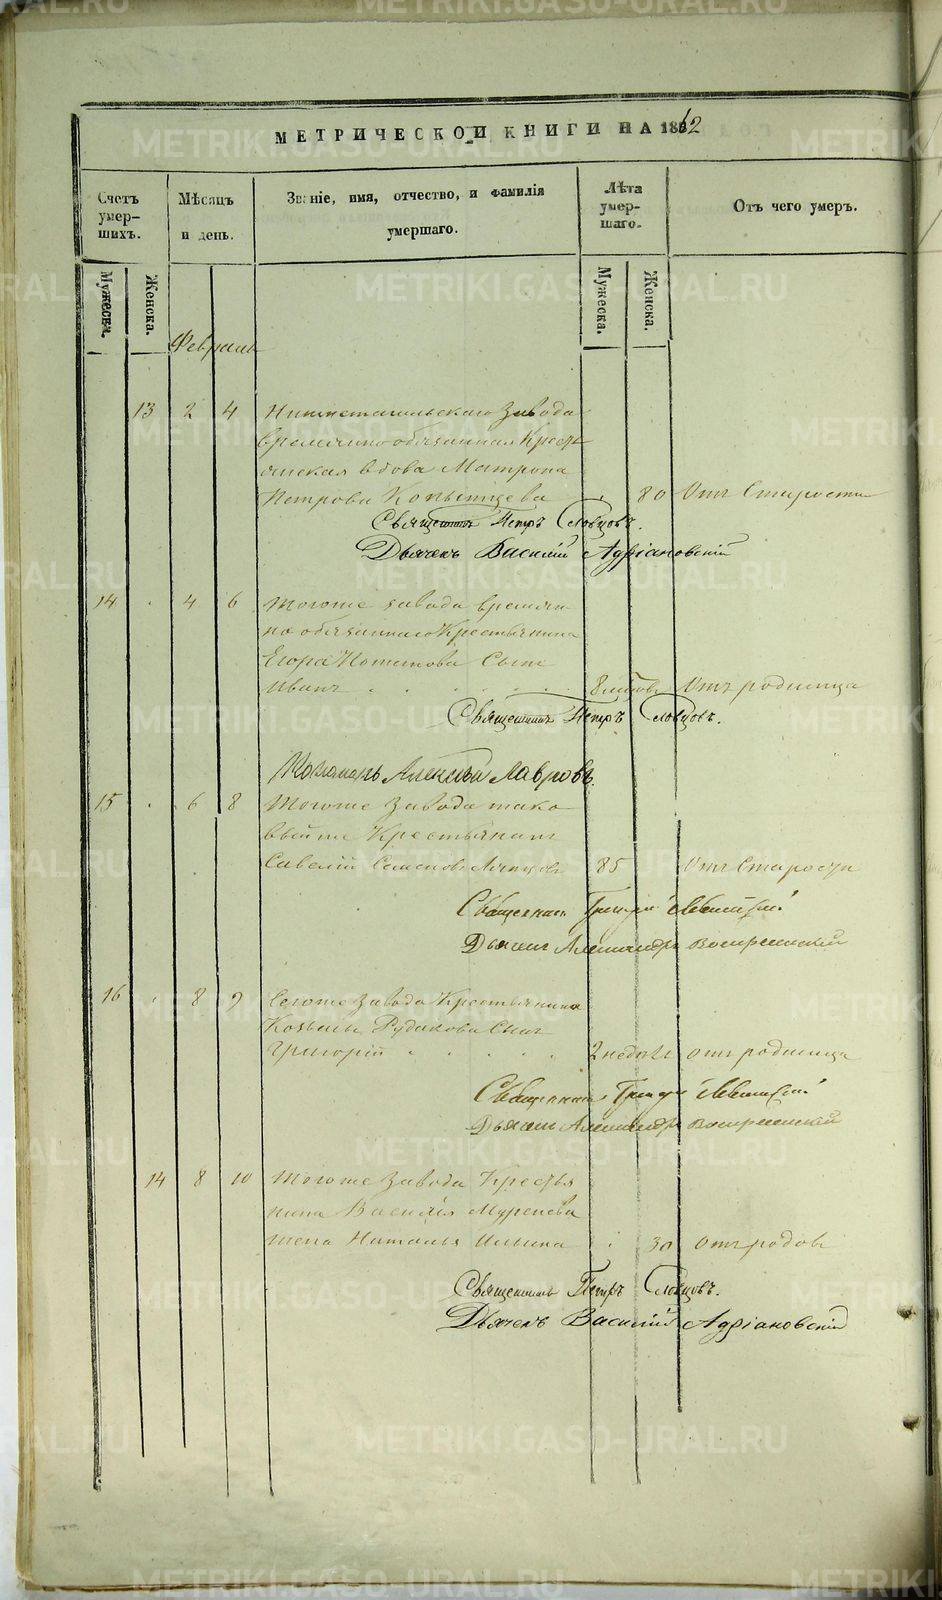 МЕТРИЧЕСКОЙ КНИГИ НА 1862
Счетъ умер-шихъ.
Мѣсяцъ и день.
Званіе, имя, отчество, и фамилія умершаго.
Лѣта умер-шаго.
Отъ чего умеръ.
Мужеска.
Женска.
Мужеска.
Женска.
Февраль
13 2 4 Нижнетагильскаго Завода
временно обязанная Крестья
янская вдова Матрона
Петрова Копытцева 80 Отъ Старости
Священникъ Петръ Словцовъ.
Дьячекъ Василій Адріановскій
14 4 6 Тогоже завода времян
но обязаннаго Крестьянина
Егора Сынъ
Иванъ Отъ родимца
Священникъ Петръ Словцовъ.
Пономарь Алексѣй Лавровъ.
15 6 8 Тогоже Завода тако
выйже Крестьянинъ
Савелій Семеновъ 85 Отъ Старости
Священникъ Григорій Левитскій
Дьячекъ Александръ Воскресенскій
16 8 9 Сегоже Завода Крестьянина
Козьмы Рудакова Сынъ
Григорій 2 недѣли отъ родимца
Священникъ Григорій Левитскій
Дьячекъ Александръ Воскресенскій
14 8 10 Тогоже Завода Крестья
нина Василія
жена Наталья Ильина 30 отъ родовъ
Священникъ Петръ Словцовъ.
Дьячекъ Василій Адріановскій
METRIKI.GASO-URAL.RU